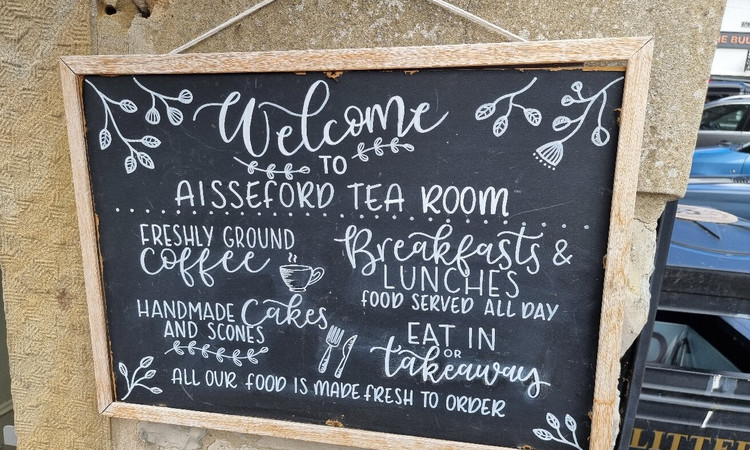 Welcome
TO
AISSEFORD TEA ROOM
FRESHLY GROUND
coffee
HANDMADE Cakes
AND SCONES
Breakfasts &
LUNCHES
FOOD SERVED ALL DAY
EAT IN
OR
takeaway
ALL OUR FOOD IS MADE FRESH TO ORDER
THE BUL
LITTE